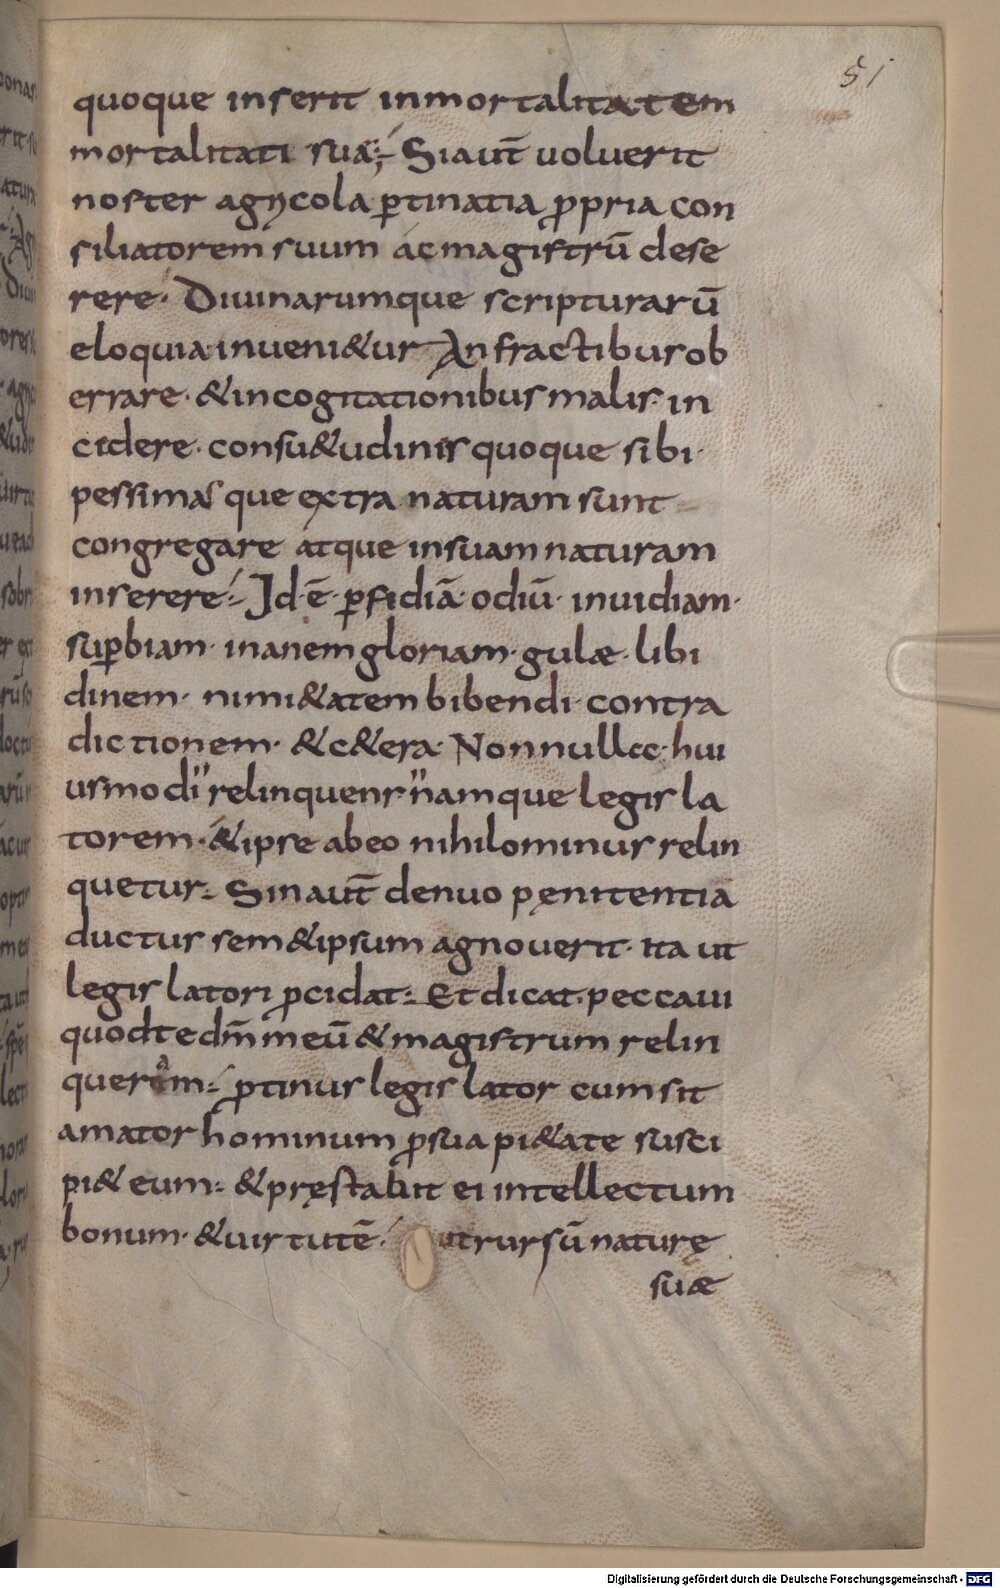 51
quoque inserit inmortalitatem
mortalitati suae;, Si aut̄ uoluerit
noster agrycola ꝑtinatia ꝓpria con
siliatorem suum ac magistrū dese
rere· Diuinarumque scripturarū
eloquia inueni&ur Anfractibus ob
errare· & in cogitationibus malis in
cidere· consu&udinis quoque sibi·
pessimas que extra naturam sunt
congregare atque in suam naturam
inserere· Id· ē· ꝑfidiā· odiū· inuidiam·
suꝑbiam· inanem gloriam· gulæ· libi
dinem· nimi&atem bibendi· contra
dictionem· & c&era· Non nulle· hui
usmodi" relinquens "namque legis la
torem· & ipse ab eo nihilominus relin
quetur· Sin aut̄ denuo pęnitentia
ductus sem&ipsum agnouerit· ita ut
legis latori ꝓcidat· Et dicat· peccaui
quod te dn̄m meū & magistrum relin
querem· ꝓtinus legis lator cum sit
amator hominum ꝓ sua pi&ate susci
pi& eum· & pręstabit ei intellectum
bonum· & uirtutē· ut rursū naturę
suæ
Digitalisierung gefördert durch die Deutsche Forschungsgemeinschaft - DFG